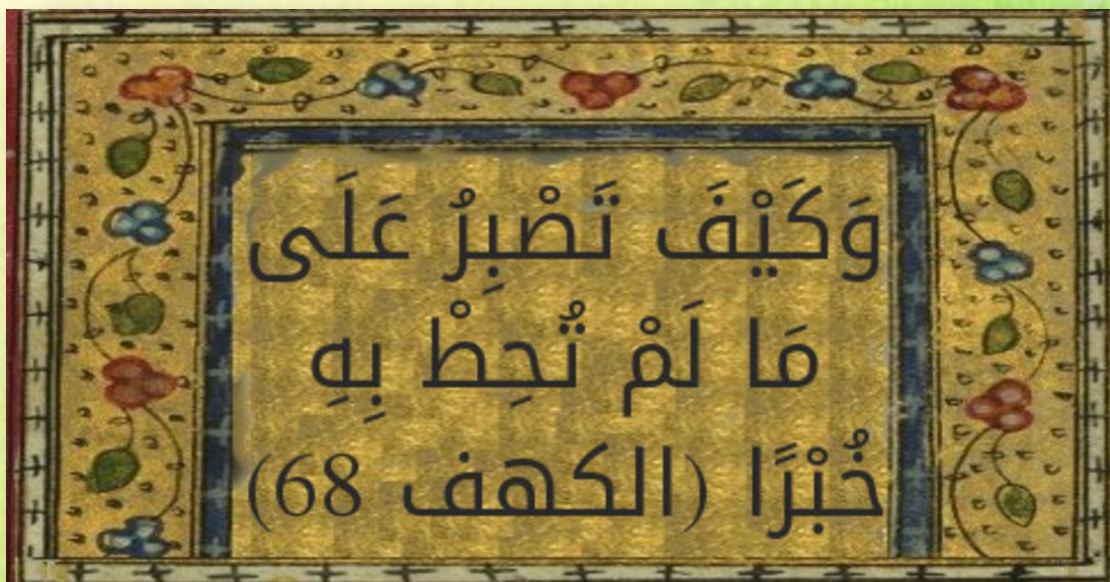 وَكَيْفَ تَصْبِرُ عَلَى
مَا لَمْ تُحِطْ بِهِ
خُبْرًا (الكهف 68)